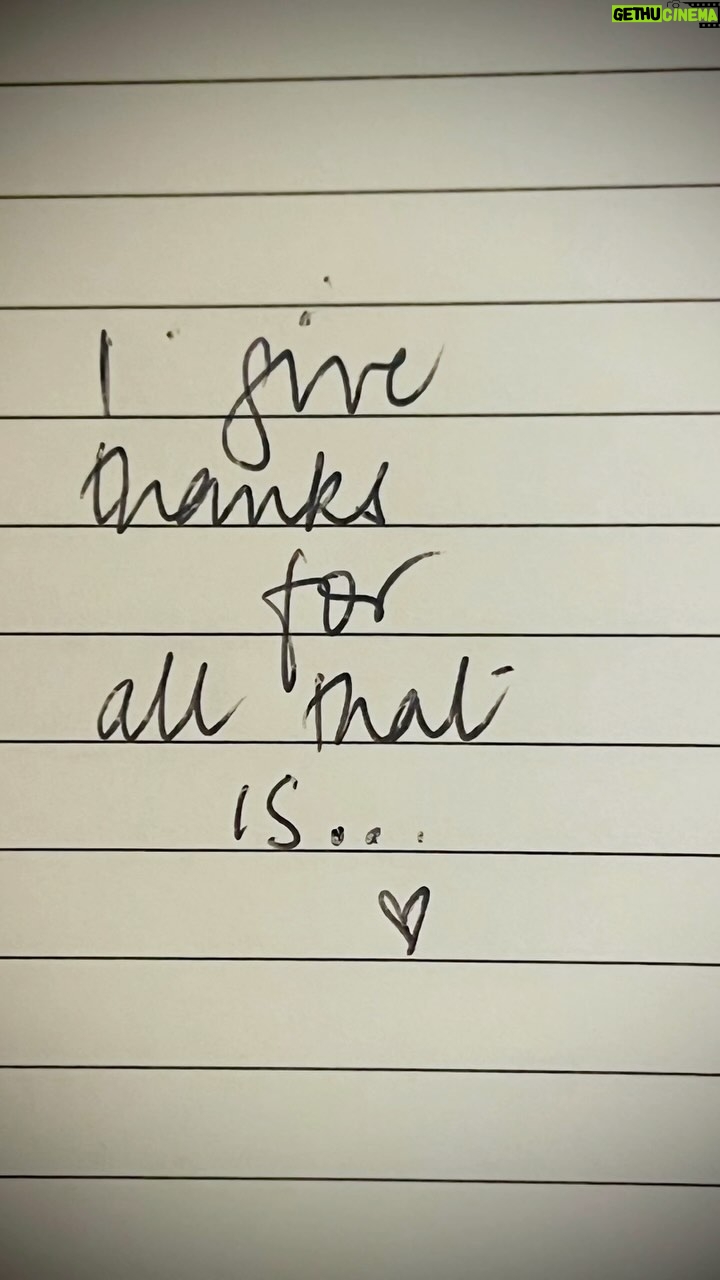 GETHUCINEMA
I give
thanks
for
all that
is...